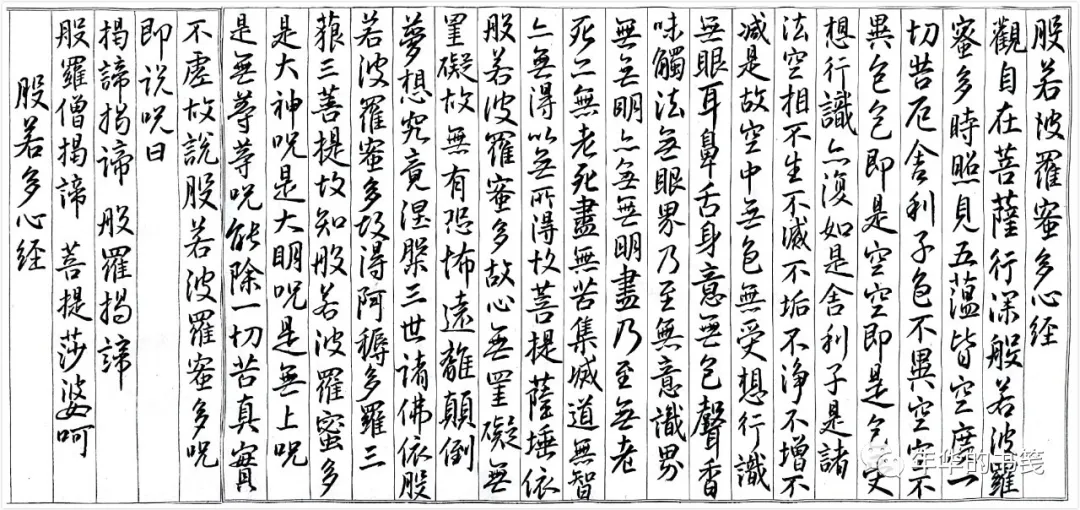 般若波羅蜜多心经
觀自在菩薩行深般若波羅
蜜多時照見五藴皆空度一
切苦厄舍利子色不異空空不
異色色即是空空即是色受
想行識亦復如是舍利子是諸
法空相不生不滅不垢不净不增不
减是故空中無色無受想行識
無眼耳鼻舌身意無色聲香
味觸法无眼界乃至無意識界
無无明亦无無明盡乃至无老
死亦無老死盡無苦集滅道無智
亦無得以无所得故菩提薩埵依
般若波羅蜜多故心无罣礙無
罣礙故無有恐怖遠離顛倒
夢想究竟涅槃三世諸佛依般
若波羅蜜多故得阿耨多羅三
藐三菩提故知般若波羅蜜多
是大神咒是大明咒是無上咒
是無等等咒能除一切苦真實
不虚故說般若波羅蜜多咒
即说咒曰
揭諦揭諦 般羅揭諦
般羅僧揭諦 菩提莎婆呵
般若多心经
年华的书笺